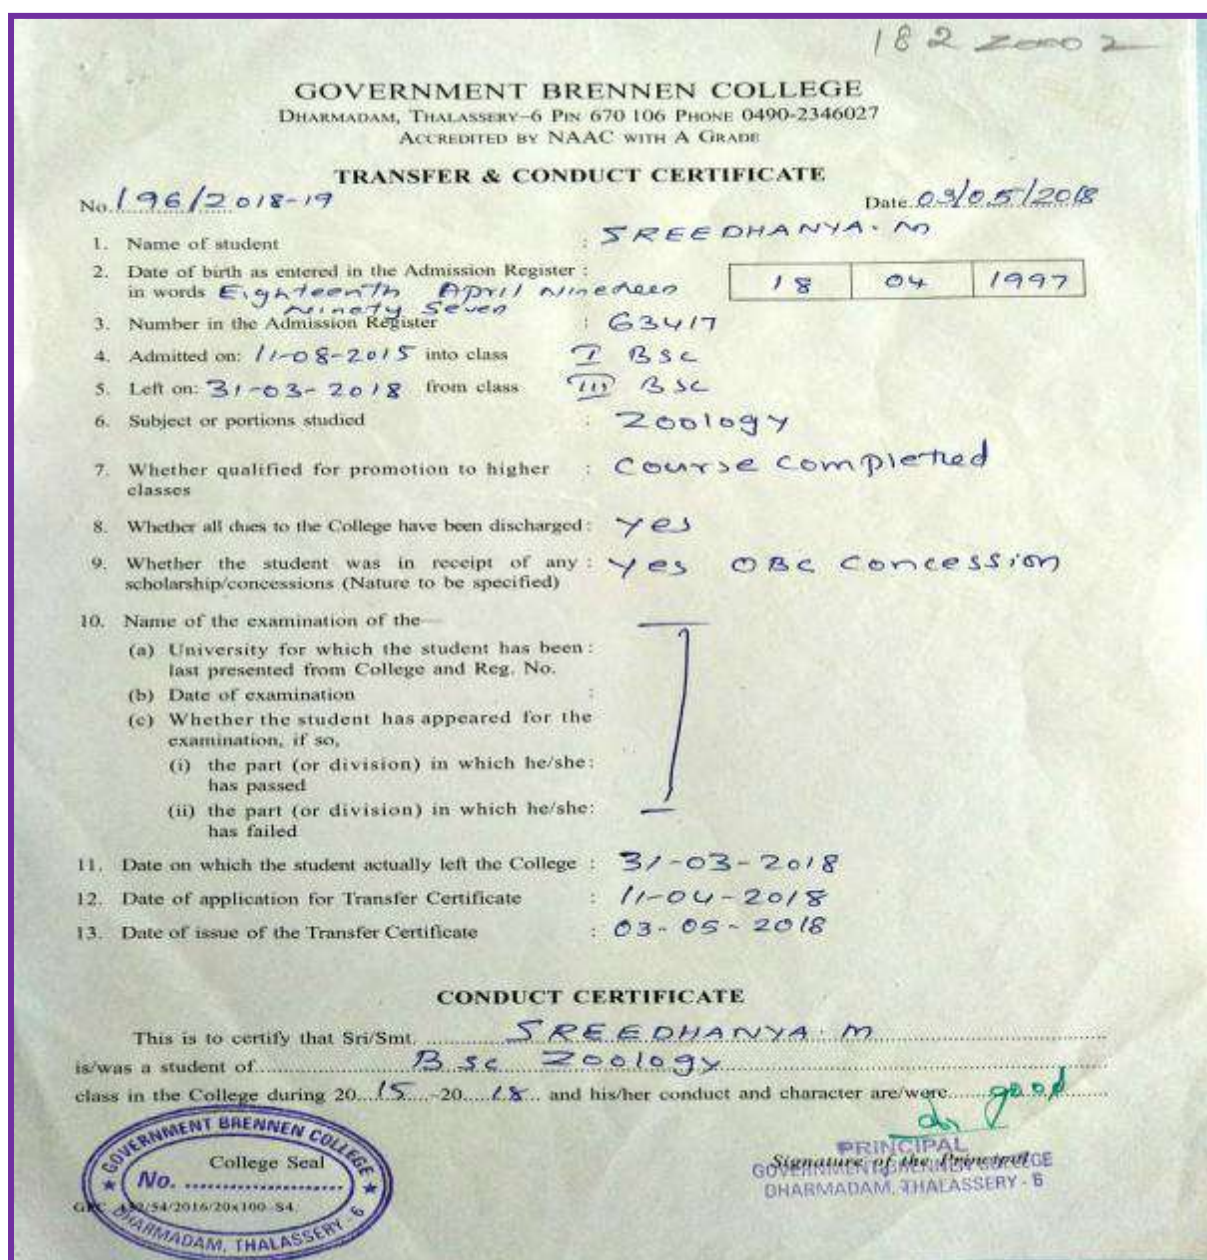 182 Zoo 2
GOVERNMENT BRENNEN COLLEGE
DHARMADAM, THALASSERY–6 PIN 670 106 PHONE 0490-2346027
ACCREDITED BY NAAC WITH A GRADE
TRANSFER & CONDUCT CERTIFICATE
No. 196/2018-19 Date 03/05/2018
1. Name of student : SREEDHANYA. M
2. Date of birth as entered in the Admission Register : 18 04 1997
in words Eighteenth April Nineteen
Ninety Seven
3. Number in the Admission Register : 63417
4. Admitted on: 11-08-2015 into class I BSC
5. Left on: 31-03-2018 from class III BSC
6. Subject or portions studied : Zoology
7. Whether qualified for promotion to higher : Course completed
classes
8. Whether all dues to the College have been discharged : Yes
9. Whether the student was in receipt of any : Yes OBC Concession
scholarship/concessions (Nature to be specified)
10. Name of the examination of the—
(a) University for which the student has been :
last presented from College and Reg. No.
(b) Date of examination :
(c) Whether the student has appeared for the
examination, if so,
(i) the part (or division) in which he/she :
has passed
(ii) the part (or division) in which he/she :
has failed
11. Date on which the student actually left the College : 31-03-2018
12. Date of application for Transfer Certificate : 11-04-2018
13. Date of issue of the Transfer Certificate : 03-05-2018
CONDUCT CERTIFICATE
This is to certify that Sri/Smt. SREEDHANYA. M
is/was a student of B Sc Zoology
class in the College during 2015-2018 and his/her conduct and character are/were good
GOVERNMENT BRENNEN COLLEGE
College Seal
No.
DHARMADAM, THALASSERY - 6
/54/2016/20x100-S4.
PRINCIPAL
Signature of the Principal
GOVERNMENT BRENNEN COLLEGE
DHARMADAM, THALASSERY - 6